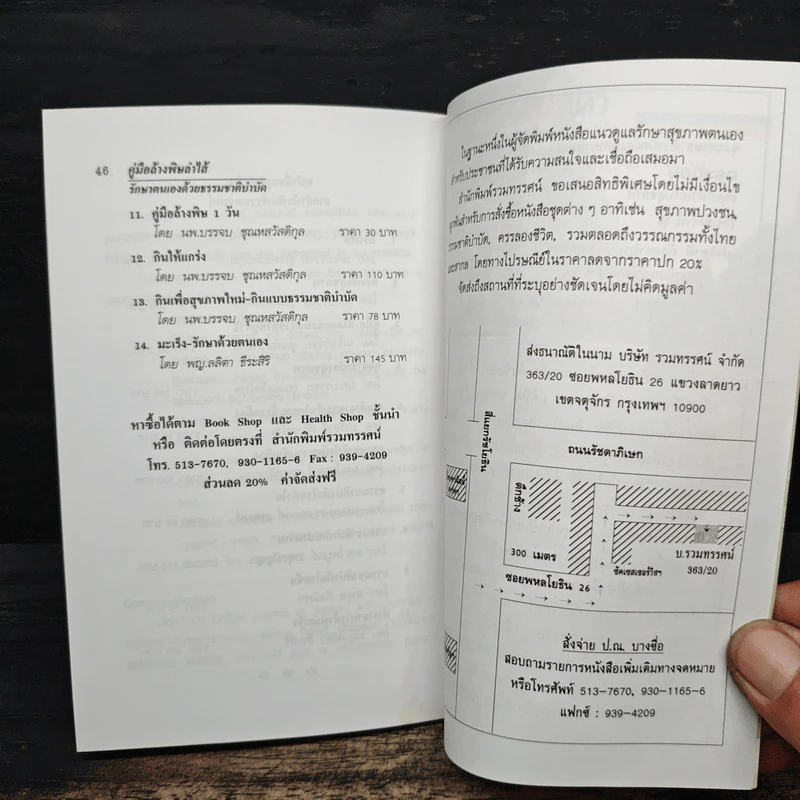 46 คู่มือล้างพิษลำไส้
รักษาตนเองด้วยธรรมชาติบำบัด
11. คู่มือล้างพิษ 1 วัน
โดย นพ.บรรจบ ชุณหสวัสดิกุล ราคา 30 บาท
12. กินให้แกร่ง
โดย นพ.บรรจบ ชุณหสวัสดิกุล ราคา 110 บาท
13. กินเพื่อสุขภาพใหม่-กินแบบธรรมชาติบำบัด
โดย นพ.บรรจบ ชุณหสวัสดิกุล ราคา 78 บาท
14. มะเร็ง-รักษาด้วยตนเอง
โดย พญ.ลลิตา ธีระสิริ ราคา 145 บาท
หาซื้อได้ตาม Book Shop และ Health Shop ชั้นนำ
หรือ ติดต่อโดยตรงที่ สำนักพิมพ์รวมทรรศน์
โทร. 513-7670, 930-1165-6 Fax : 939-4209
ส่วนลด 20% ค่าจัดส่งฟรี
ในฐานะหนึ่งในผู้จัดพิมพ์หนังสือแนวดูแลรักษาสุขภาพตนเอง
สำหรับประชาชนที่ได้รับความสนใจและเชื่อถือเสมอมา
สำนักพิมพ์รวมทรรศน์ ขอเสนอสิทธิพิเศษโดยไม่มีเงื่อนไข
ผูกพันสำหรับการสั่งซื้อหนังสือชุดต่าง ๆ อาทิเช่น สุขภาพปวงชน,
ธรรมชาติบำบัด, ครรลองชีวิต, รวมตลอดถึงวรรณกรรมทั้งไทย
และสากล โดยทางไปรษณีย์ในราคาลดจากราคาปก 20%
จัดส่งถึงสถานที่ที่ระบุอย่างชัดเจนโดยไม่คิดมูลค่า
ส่งธนาณัติในนาม บริษัท รวมทรรศน์ จำกัด
363/20 ซอยพหลโยธิน 26 แขวงลาดยาว
เขตจตุจักร กรุงเทพฯ 10900
สี่แยกรัชโยธิน
ถนนรัชดาภิเษก
ตึกช้าง
300 เมตร
บ.รวมทรรศน์
363/20
ซัคเซสเซอร์วิสฯ
ซอยพหลโยธิน 26
สั่งจ่าย ป.ณ. บางซื่อ
สอบถามรายการหนังสือเพิ่มเติมทางจดหมาย
หรือโทรศัพท์ 513-7670, 930-1165-6
แฟกซ์ : 939-4209